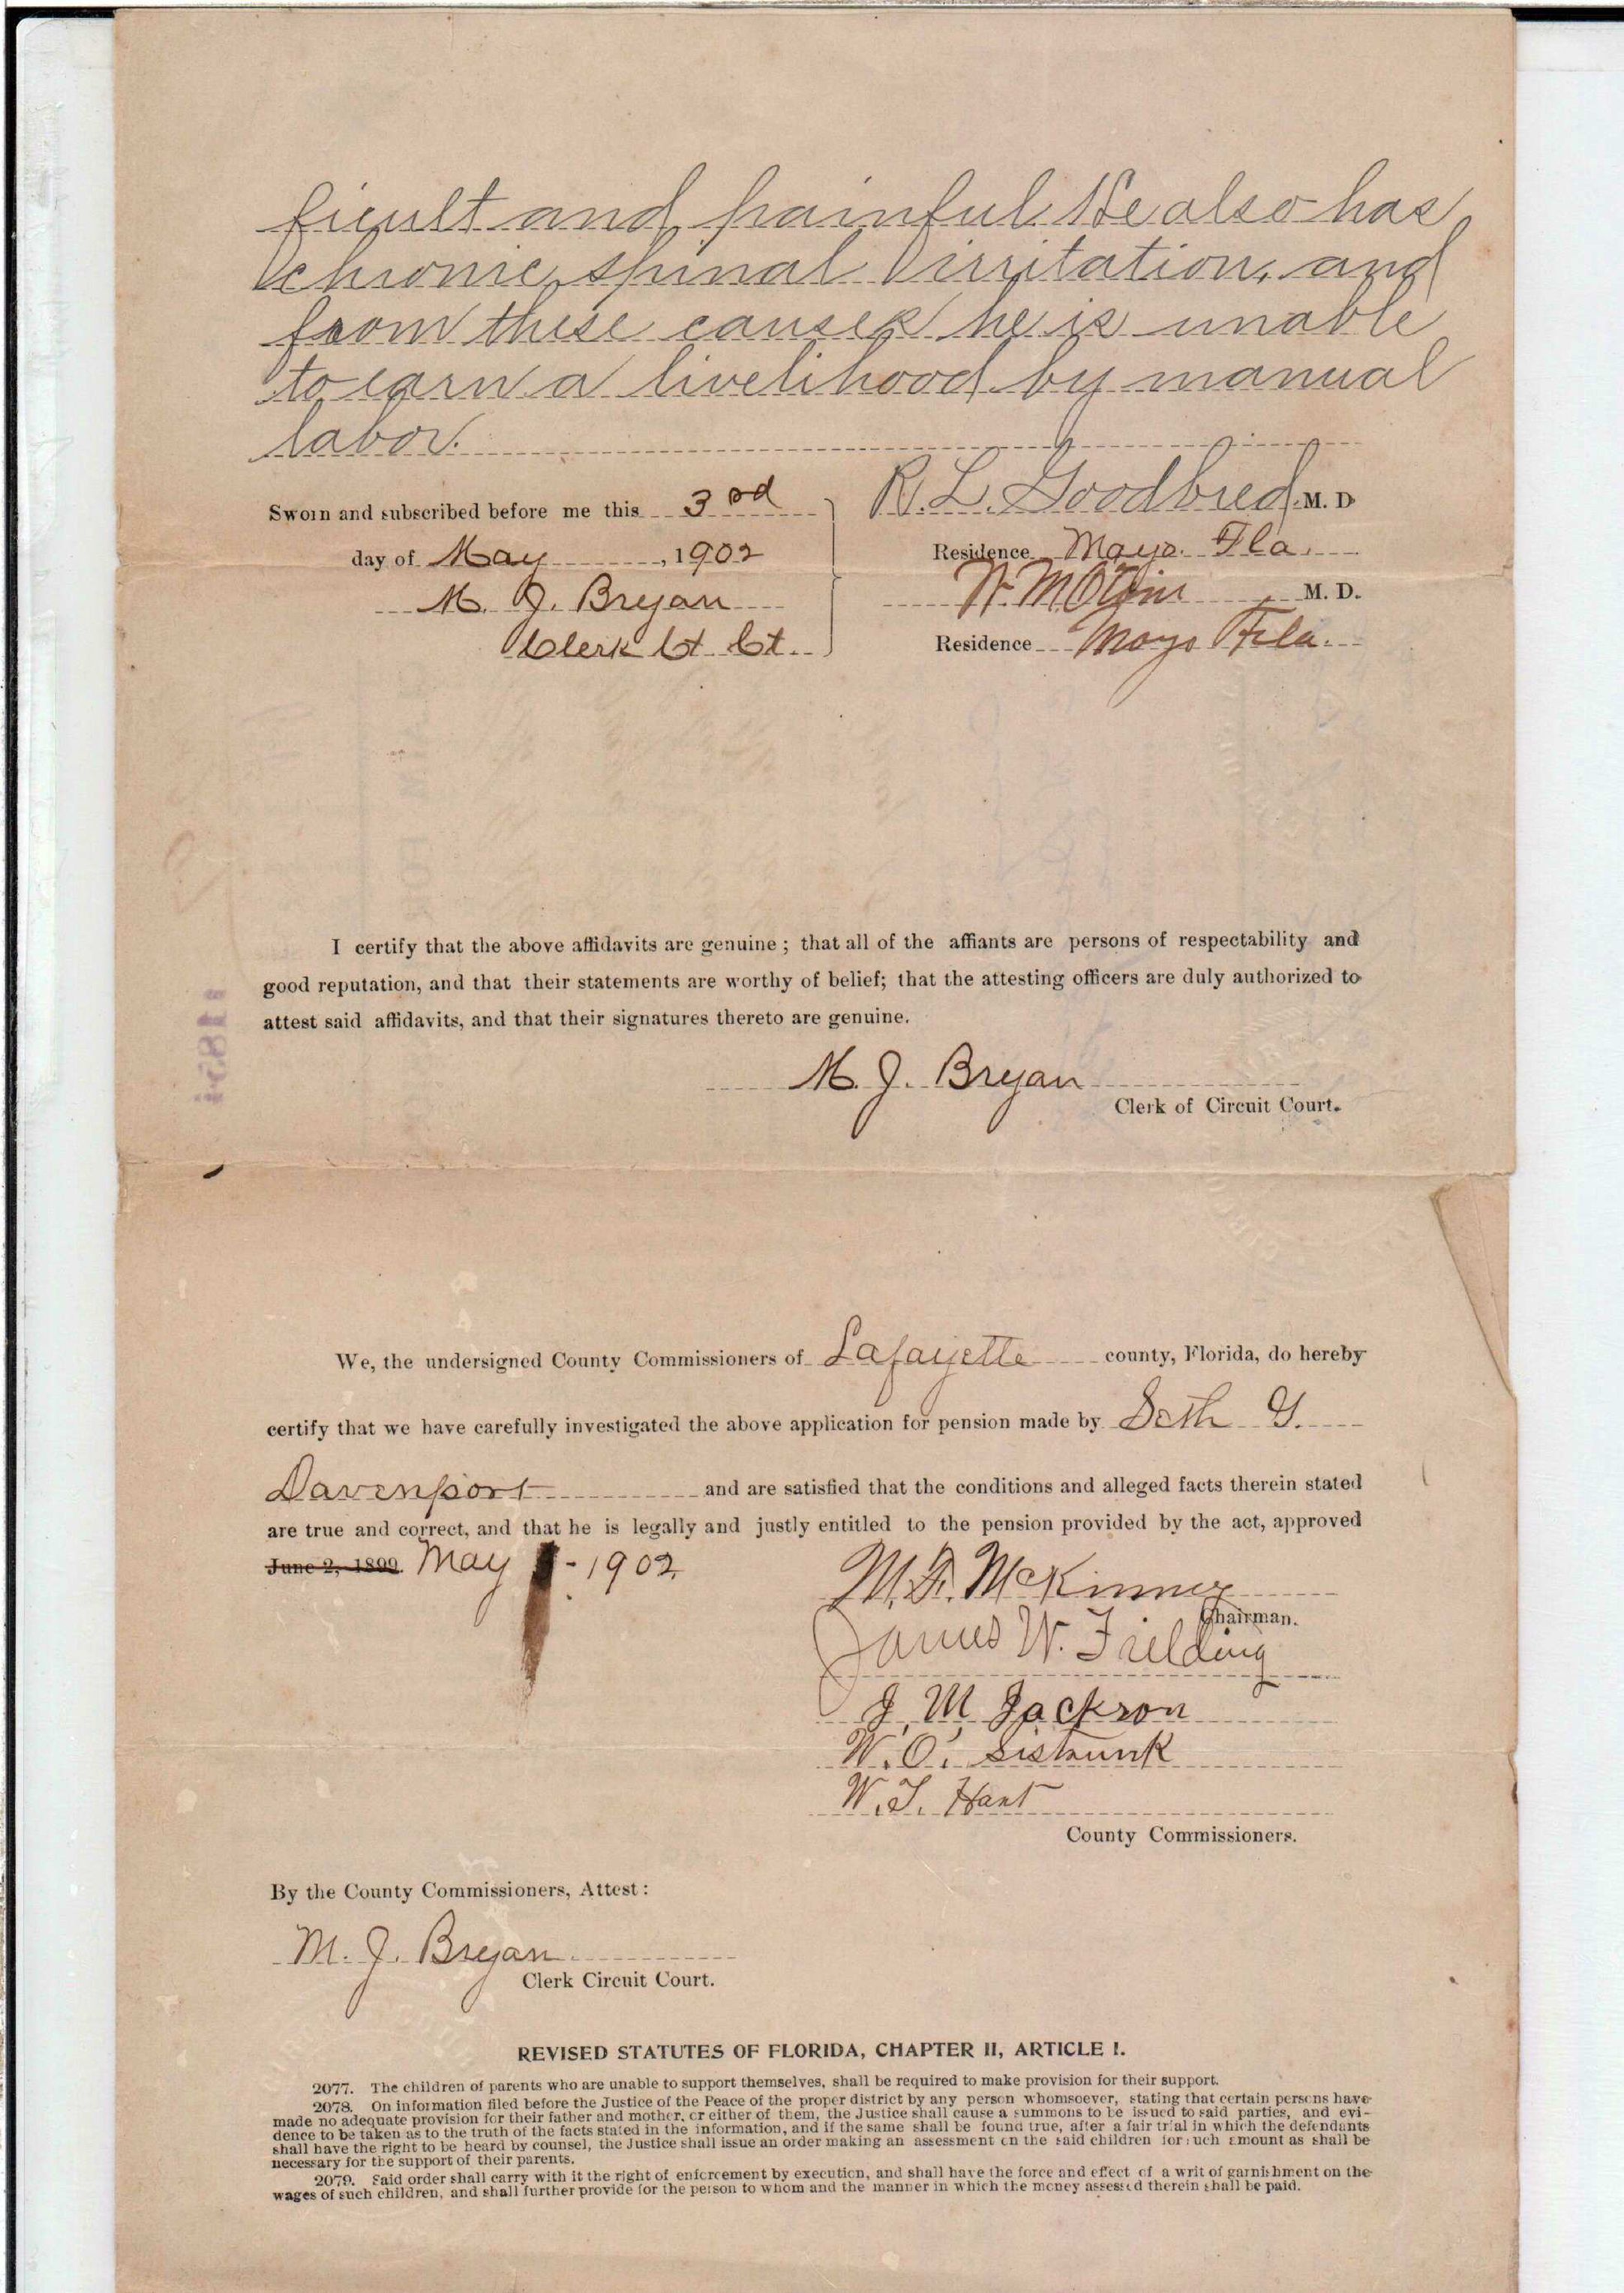 ficult and painful. He also has
chronic spinal irritation, and
from these causes he is unable
to earn a livelihood by manual
labor.
Sworn and subscribed before me this 3rd
day of May, 1902
M. J. Bryan
Clerk Ct Ct.
R. L. Goodbred M. D
Residence Mayo. Fla.
M. D.
Residence Mayo Fla.
I certify that the above affidavits are genuine; that all of the affiants are persons of respectability and
good reputation, and that their statements are worthy of belief; that the attesting officers are duly authorized to
attest said affidavits, and that their signatures thereto are genuine.
M. J. Bryan
Clerk of Circuit Court.
We, the undersigned County Commissioners of Lafayette county, Florida, do hereby
certify that we have carefully investigated the above application for pension made by Seth G.
Davenport and are satisfied that the conditions and alleged facts therein stated
are true and correct, and that he is legally and justly entitled to the pension provided by the act, approved
June 2, 1899. May - 1902
M. F. McKinney
Chairman.
James W. Fielding
J. M. Jackson
W. O. Sistrunk
W. T. Hant
County Commissioners.
By the County Commissioners, Attest:
M. J. Bryan
Clerk Circuit Court.
REVISED STATUTES OF FLORIDA, CHAPTER II, ARTICLE I.
2077. The children of parents who are unable to support themselves, shall be required to make provision for their support.
2078. On information filed before the Justice of the Peace of the proper district by any person whomsoever, stating that certain persons have
made no adequate provision for their father and mother, or either of them, the Justice shall cause a summons to be issued to said parties, and evi-
dence to be taken as to the truth of the facts stated in the information, and if the same shall be found true, after a fair trial in which the defendants
shall have the right to be heard by counsel, the Justice shall issue an order making an assessment on the said children for such amount as shall be
necessary for the support of their parents.
2079. Said order shall carry with it the right of enforcement by execution, and shall have the force and effect of a writ of garnishment on the
wages of such children, and shall further provide for the person to whom and the manner in which the money assessed therein shall be paid.